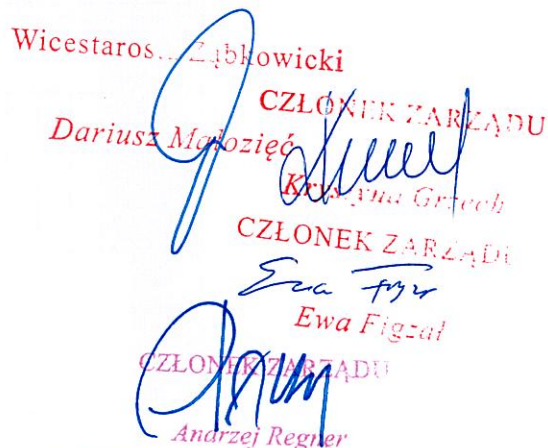 Wicestaros... Ząbkowicki
Dariusz Małozięć
CZŁONEK ZARZĄDU
Krystyna Grzech
CZŁONEK ZARZĄDU
Ewa Figzał
CZŁONEK ZARZĄDU
Andrzej Regner